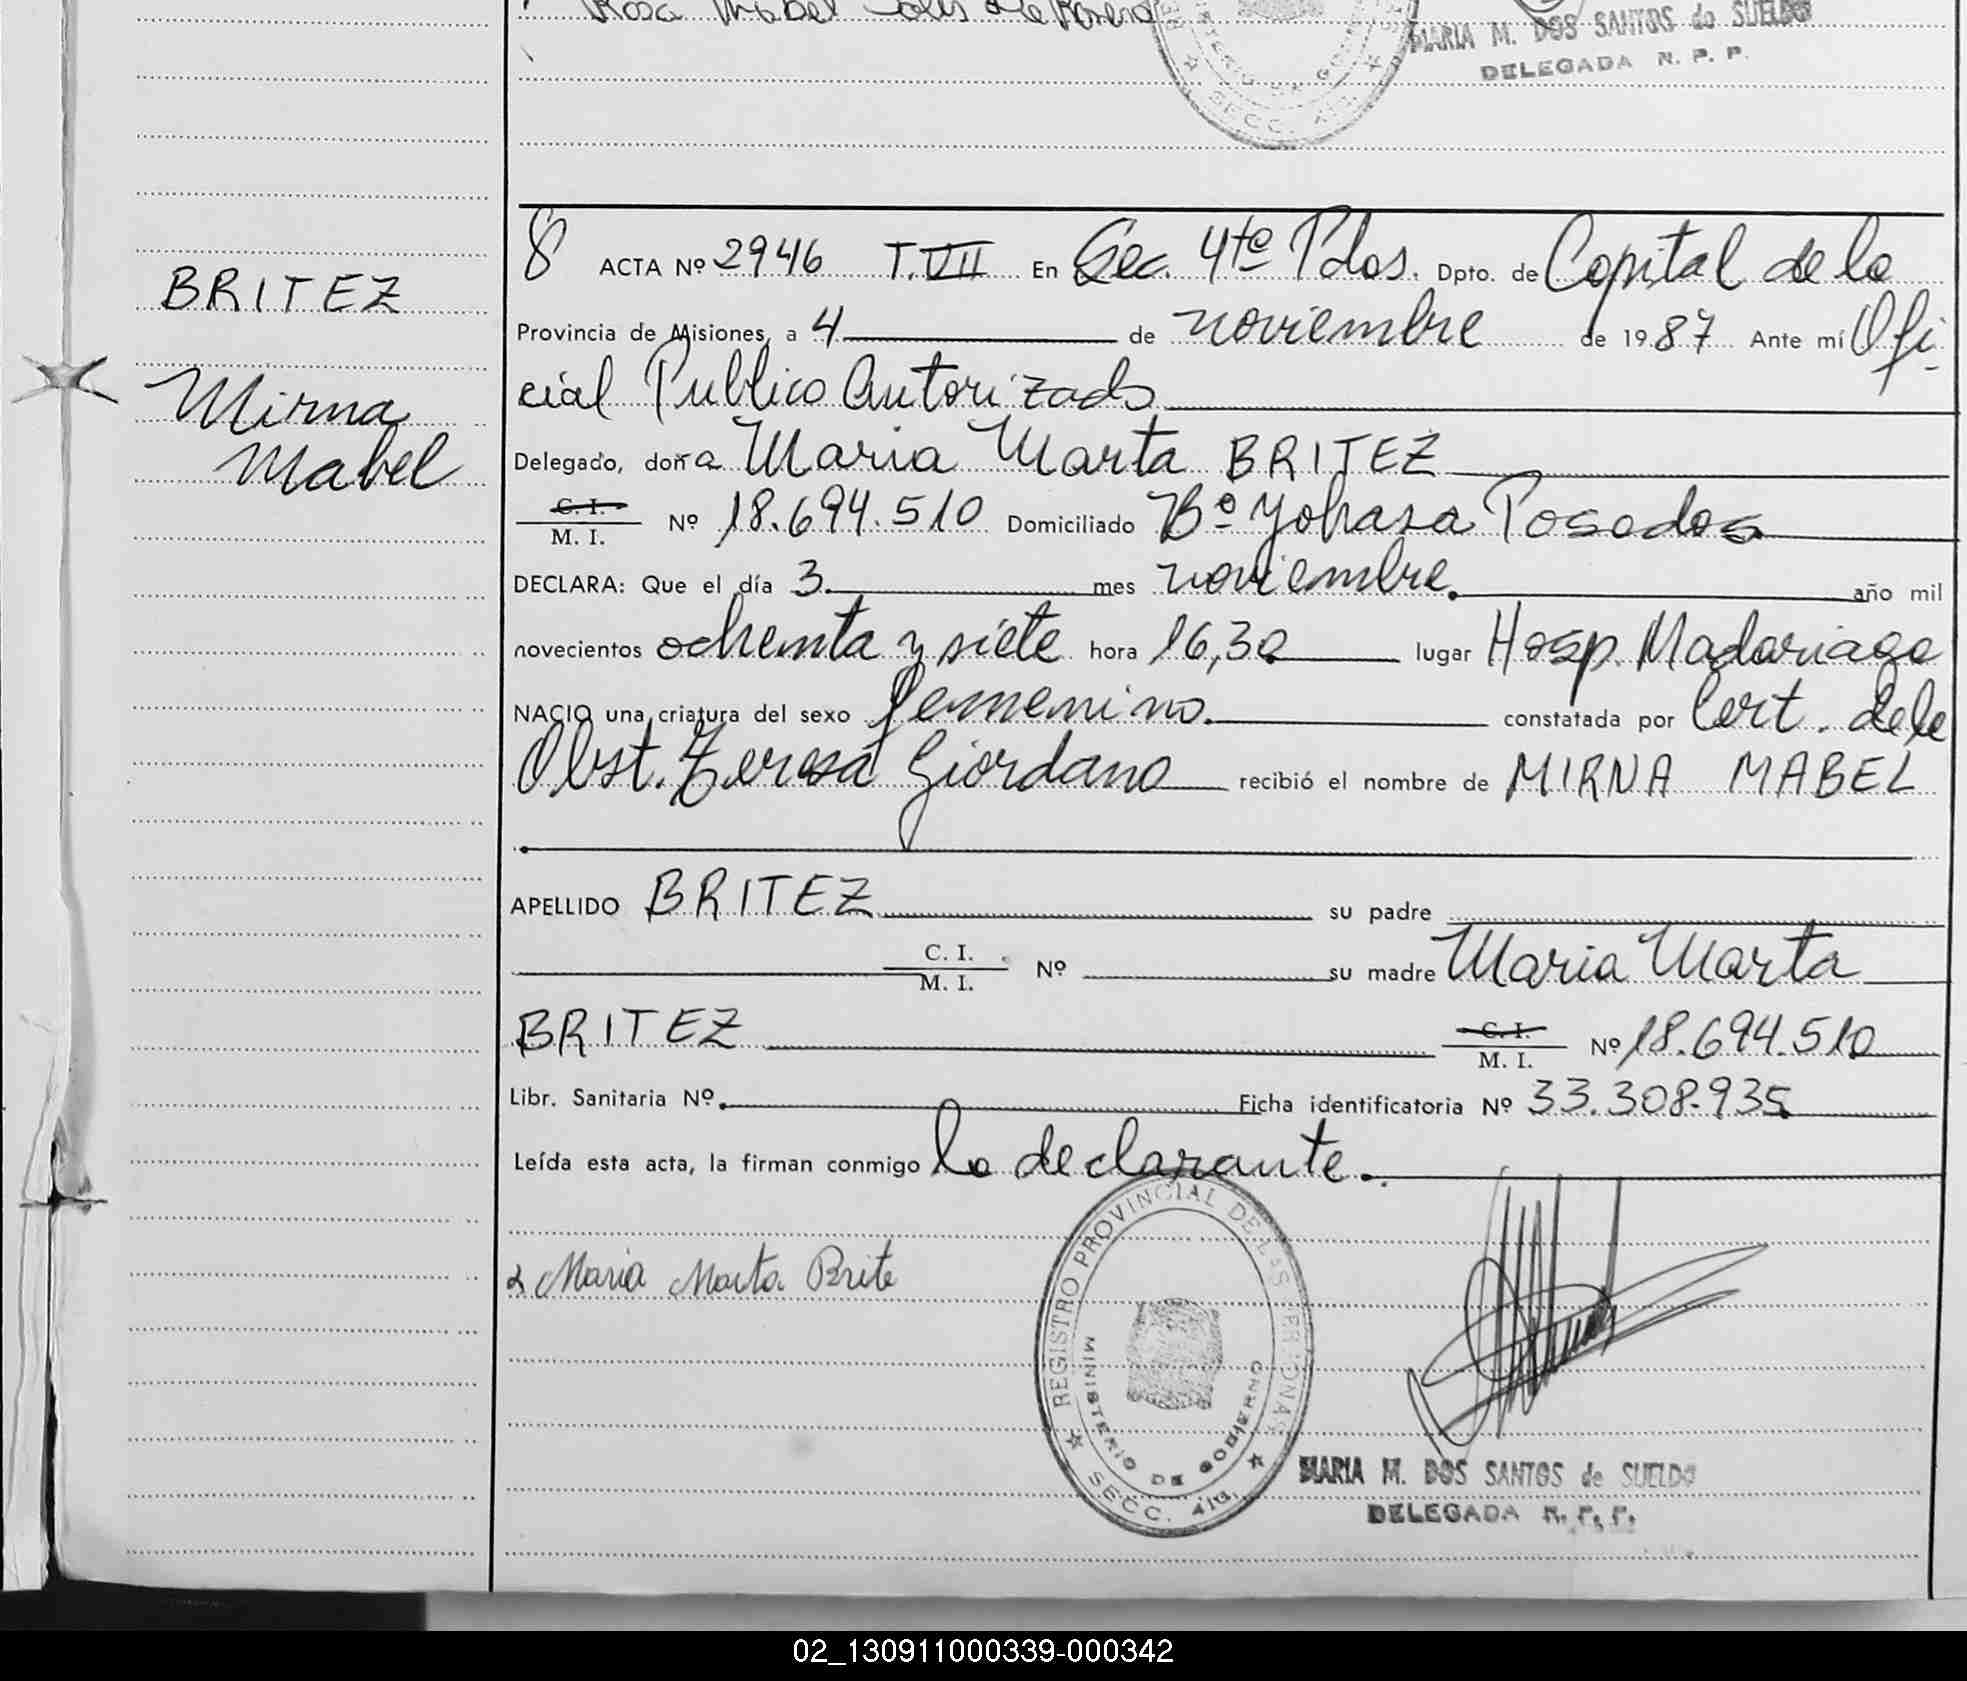 Rosa Mabel
MARIA M. DOS SANTOS de SUELDO
DELEGADA N. P. P.
BRITEZ
Mirna
Mabel
8 ACTA Nº 2946 T. VII En Sec. 4ta Pdas. Dpto. de Capital de la
Provincia de Misiones, a 4 de noviembre de 1987 Ante mí Ofi-
cial Publico Autorizado
Delegado, doña Maria Marta BRITEZ
C. I.
M. I. Nº 18.694.510 Domiciliado Bº Yohasa Posadas
DECLARA: Que el día 3 mes noviembre. año mil
novecientos ochenta y siete hora 16,30 lugar Hosp. Madariaga
NACIO una criatura del sexo femenino. constatada por Cert. de la
Obst. Teresa Giordano recibió el nombre de MIRNA MABEL
APELLIDO BRITEZ su padre
C. I.
M. I. Nº su madre Maria Marta
BRITEZ C. I.
M. I. Nº 18.694.510
Libr. Sanitaria Nº. Ficha identificatoria Nº 33.308.935
Leída esta acta, la firman conmigo la declarante.
Maria Marta Brite
REGISTRO PROVINCIAL DE LAS PERSONAS
MINISTERIO DE GOBIERNO
SECC. 4ta.
MARIA M. DOS SANTOS de SUELDO
DELEGADA R. P. P.
02_130911000339-000342